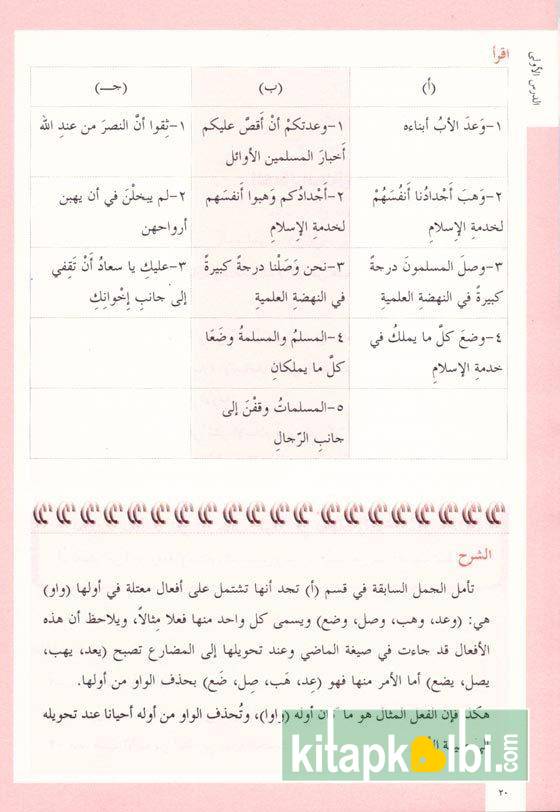 الدرس الأولى
اقرأ
(أ)
(ب)
(جـ)
١-وَعدَ الأبُ أبناءه
١-وعدتكمْ أنْ أَقصَّ عليكم
أَخبارَ المسلمين الأوائل
١-ثِقوا أنَّ النصرَ من عندِ الله
٢-وَهبَ أَجدادُنا أَنفُسَهُمْ
لخدمةِ الإِسلامِ
٢-أَجْدادُكم وَهبوا أَنفسَهم
لخدمةِ الإِسلامِ
٢-لم يبخلْنَ في أن يهبن
أرواحهن
٣-وصلَ المسلمونَ درجةً
كبيرةً في النهضةِ العلميةِ
٣-نحن وَصَلْنا درجةً كبيرةً
في النهضةِ العلميةِ
٣-عليكِ يا سعادُ أَنْ تَقِفي
إلى جانبِ إِخْوانِكِ
٤-وضعَ كلَّ ما يملكُ في
خدمةِ الإِسلامِ
٤-المسلمُ والمسلمةُ وضَعَا
كلَّ ما يملكانِ
٥-المسلماتُ وقفْنَ إلى
جانبِ الرّجالِ
الشرح
تأمل الجمل السابقة في قسم (أ) تجد أنها تشتمل على أفعال معتلة في أولها (واو)
هي: (وعد، وهب، وصل، وضع) ويسمى كل واحد منها فعلا مِثالاً، ويلاحظ أن هذه
الأفعال قد جاءت في صيغة الماضي وعند تحويلها إلى المضارع تصبح (يعد، يهب،
يصل، يضع) أما الأمر منها فهو (عِد، هَب، صِل، ضَع) بحذف الواو من أولها.
هكذا فإن الفعل المثال هو ما كان أوله (واوا)، وتُحذف الواو من أوله أحيانا عند تحويله
kitapkalbi.com
٢٠